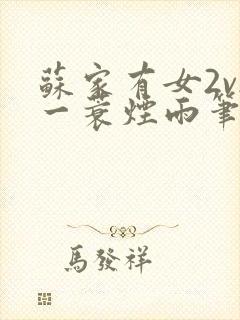 蘇家有女2v
一蓑煙雨筆
馬發祥